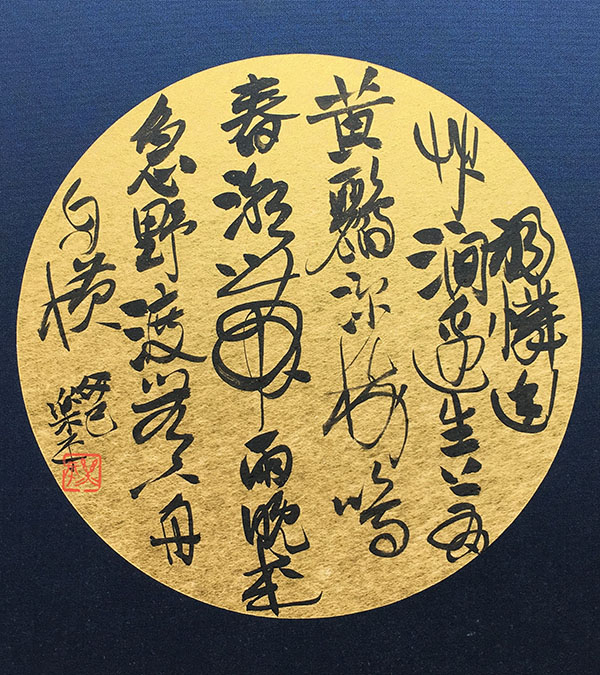 獨憐幽
艸澗邊生上有
黄鸝深樹鳴
春潮帶雨晚來
急野渡無人舟
自橫